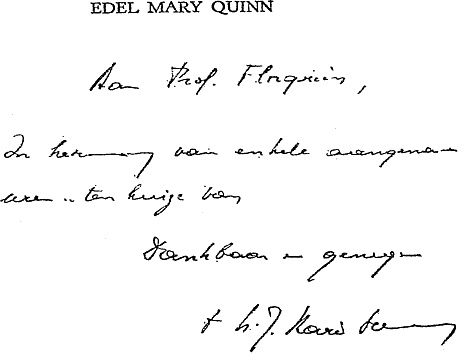 EDEL MARY QUINN
Aan Prof. Florquin,
In herinnering van enkele aangename
uren .. ten huize van
Dankbaar en genegen
+ L. J. Kard.